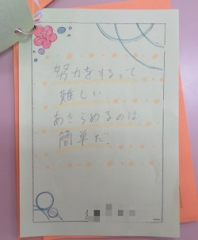 努力をするって
難しい
あきらめるのは
簡単だ。